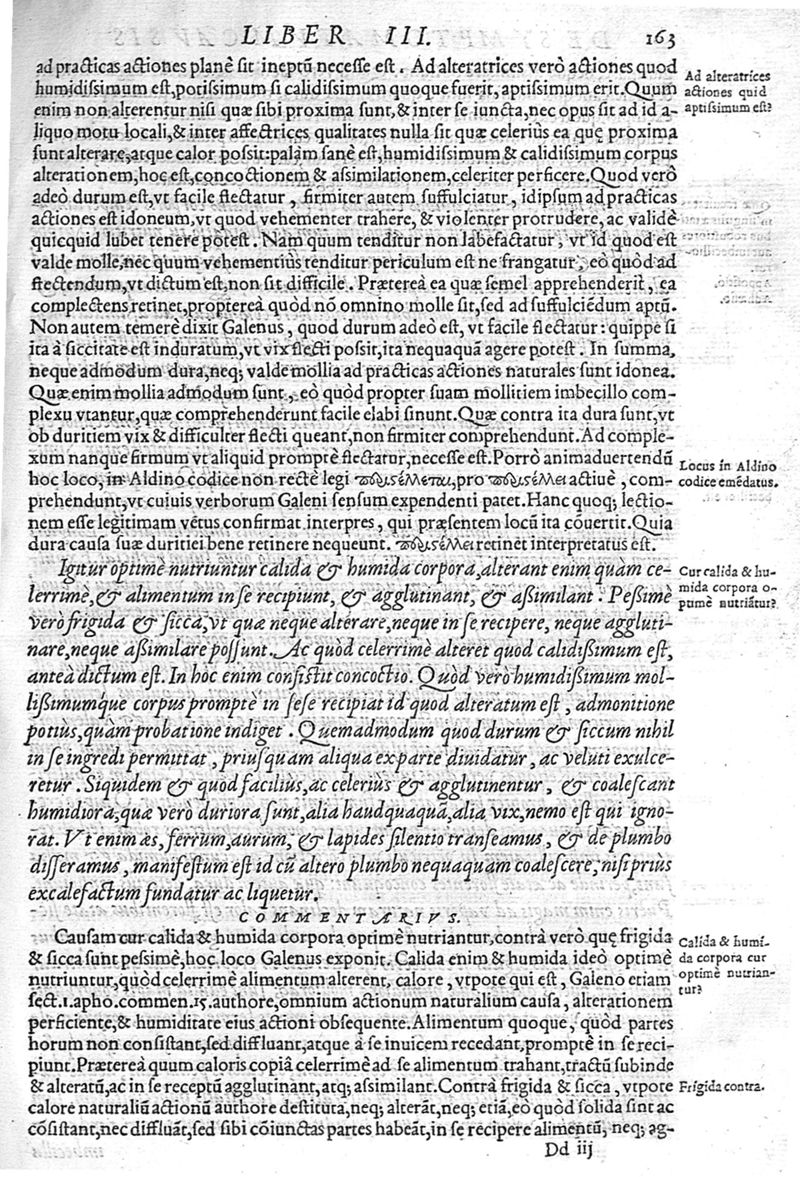 LIBER III. 163
ad practicas actiones planè sit ineptũ necesse est. Ad alteratrices verò actiones quod
humidissimum est, potissimum si calidissimum quoque fuerit, aptissimum erit. Quum
enim non alterentur nisi quæ sibi proxima sunt, & inter se iuncta, nec opus sit ad id a-
liquo motu locali, & inter affectrices qualitates nulla sit quæ celeriùs ea quę proxima
sunt alterare, atque calor possit: palàm sanè est, humidissimum & calidissimum corpus
alterationem, hoc est, concoctionem & assimilationem, celeriter perficere. Quod verò
adeò durum est, vt facile flectatur, firmiter autem suffulciatur, idipsum ad practicas
actiones est idoneum, vt quod vehementer trahere, & violenter protrudere, ac validè
quicquid lubet tenere potest. Nam quum tenditur non labefactatur, vt id quod est
valde molle, nec quum vehementiùs tenditur periculum est ne frangatur, eò quòd ad
flectendum, vt dictum est, non sit difficile. Præterea ea quæ semel apprehenderit, ea
complectens retinet, propterea quòd nõ omnino molle sit, sed ad suffulciẽdum aptũ.
Non autem temerè dixit Galenus, quod durum adeò est, vt facile flectatur: quippe si
ita à siccitate est induratum, vt vix flecti possit, ita nequaquã agere potest. In summa,
neque admodum dura, neq; valde mollia ad practicas actiones naturales sunt idonea.
Quæ enim mollia admodum sunt, eò quòd propter suam mollitiem imbecillo com-
plexu vtantur, quæ comprehenderunt facile elabi sinunt. Quæ contra ita dura sunt, vt
ob duritiem vix & difficulter flecti queant, non firmiter comprehendunt. Ad comple-
xum nanque firmum vt aliquid promptè flectatur, necesse est. Porrò animaduertendũ
hoc loco, in Aldino codice non rectè legi περιστέλλεται, pro περιστέλλει actiuè, com-
prehendunt, vt cuiuis verborum Galeni sensum expendenti patet. Hanc quoq; lectio-
nem esse legitimam vetus confirmat interpres, qui præsentem locũ ita cõuertit. Quia
dura causa suæ duritiei bene retinere nequeunt. περιστέλλει retinet interpretatus est.
Igitur optimè nutriuntur calida & humida corpora, alterant enim quàm ce-
lerrimè, & alimentum in se recipiunt, & agglutinant, & aßimilant. Peßimè
verò frigida & sicca, vt quæ neque alterare, neque in se recipere, neque aggluti-
nare, neque aßimilare possunt. Ac quòd celerrimè alteret quod calidißimum est,
anteà dictum est. In hoc enim consistit concoctio. Quòd verò humidißimum mol-
lißimumque corpus promptè in sese recipiat id quod alteratum est, admonitione
potiùs, quàm probatione indiget. Quemadmodum quod durum & siccum nihil
in se ingredi permittat, priusquam aliqua ex parte diuidatur, ac veluti exulce-
retur. Siquidem & quod faciliùs, ac celeriùs & agglutinentur, & coalescant
humidiora, quæ verò duriora sunt, alia haudquaquã, alia vix, nemo est qui igno-
rat. Vt enim æs, ferrum, aurum, & lapides silentio transeamus, & de plumbo
disseramus, manifestum est id cũ altero plumbo nequaquam coalescere, nisi priùs
excalefactum fundatur ac liquetur.
COMMENTARIVS.
Causam cur calida & humida corpora optimè nutriantur, contrà verò quę frigida
& sicca sunt pessimè, hoc loco Galenus exponit. Calida enim & humida ideò optimè
nutriuntur, quòd celerrimè alimentum alterent, calore, vtpote qui est, Galeno etiam
sect. 1. apho. commen. 15. authore, omnium actionum naturalium causa, alterationem
perficiente, & humiditate eius actioni obsequente. Alimentum quoque, quòd partes
horum non consistant, sed diffluant, atque à se inuicem recedant, promptè in se reci-
piunt. Præterea quum caloris copiâ celerrimè ad se alimentum trahant, tractũ subinde
& alteratũ, ac in se receptũ agglutinant, atq; assimilant. Contrà frigida & sicca, vtpote
calore naturaliũ actionũ authore destituta, neq; alterãt, neq; etiã, eò quòd solida sint ac
cõsistant, nec diffluãt, sed sibi cõiunctas partes habeãt, in se recipere alimentũ, neq; ag-
Dd iij
Ad alteratrices
actiones quid
aptissimum est?
Locus in Aldino
codice emẽdatus.
Cur calida & hu-
mida corpora o-
ptimè nutriãtur?
Calida & humi-
da corpora cur
optimè nutrian-
tur?
Frigida contra.